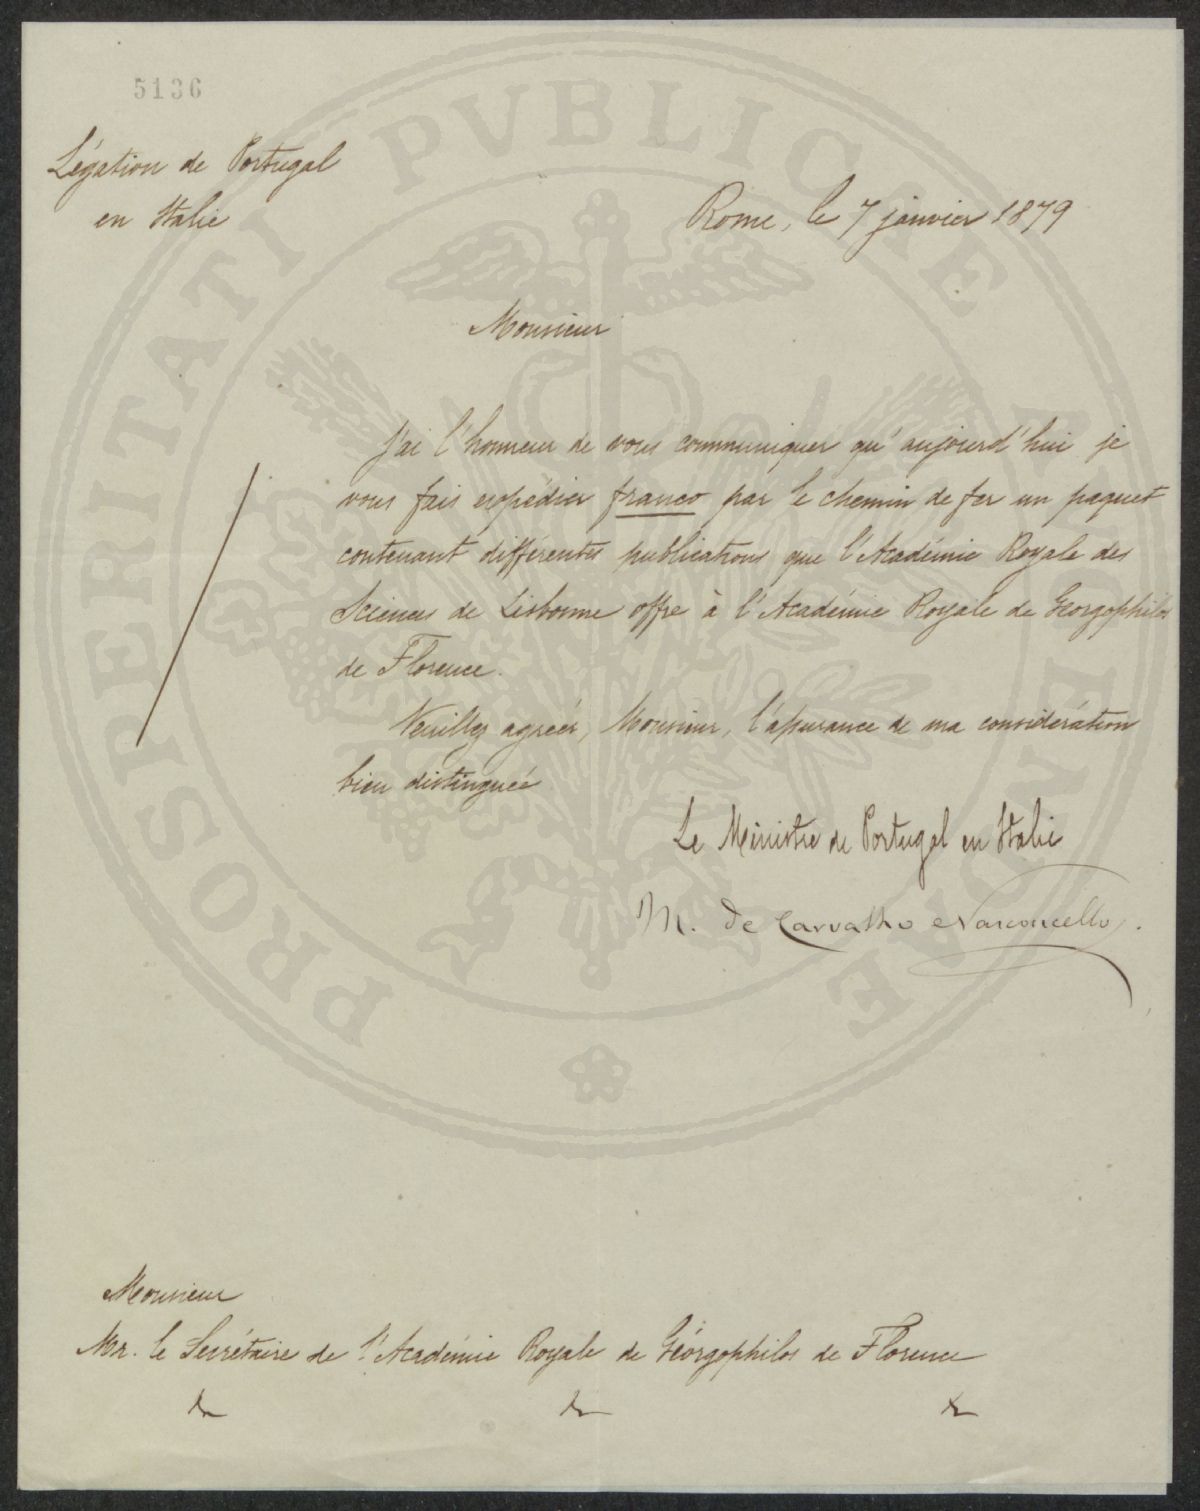 5136
Légation de Portugal
en Italie
Rome, le 7 janvier 1879
Monsieur
J'ai l'honneur de vous communiquer qu'aujourd'hui je
vous fais expédier franco par le chemin de fer un paquet
contenant différentes publications que l'Académie Royale des
Sciences de Lisbonne offre à l'Académie Royale de Géorgophilos
de Florence.
Veuillez agréer, Monsieur, l'assurance de ma considération
bien distinguée
Le Ministre de Portugal en Italie
M. de Carvalho e Vasconcellos.
Monsieur
Mr. le Secrétaire de l'Académie Royale de Géorgophilos de Florence
PROSPERITATI PVBLICAE AVGENDAE